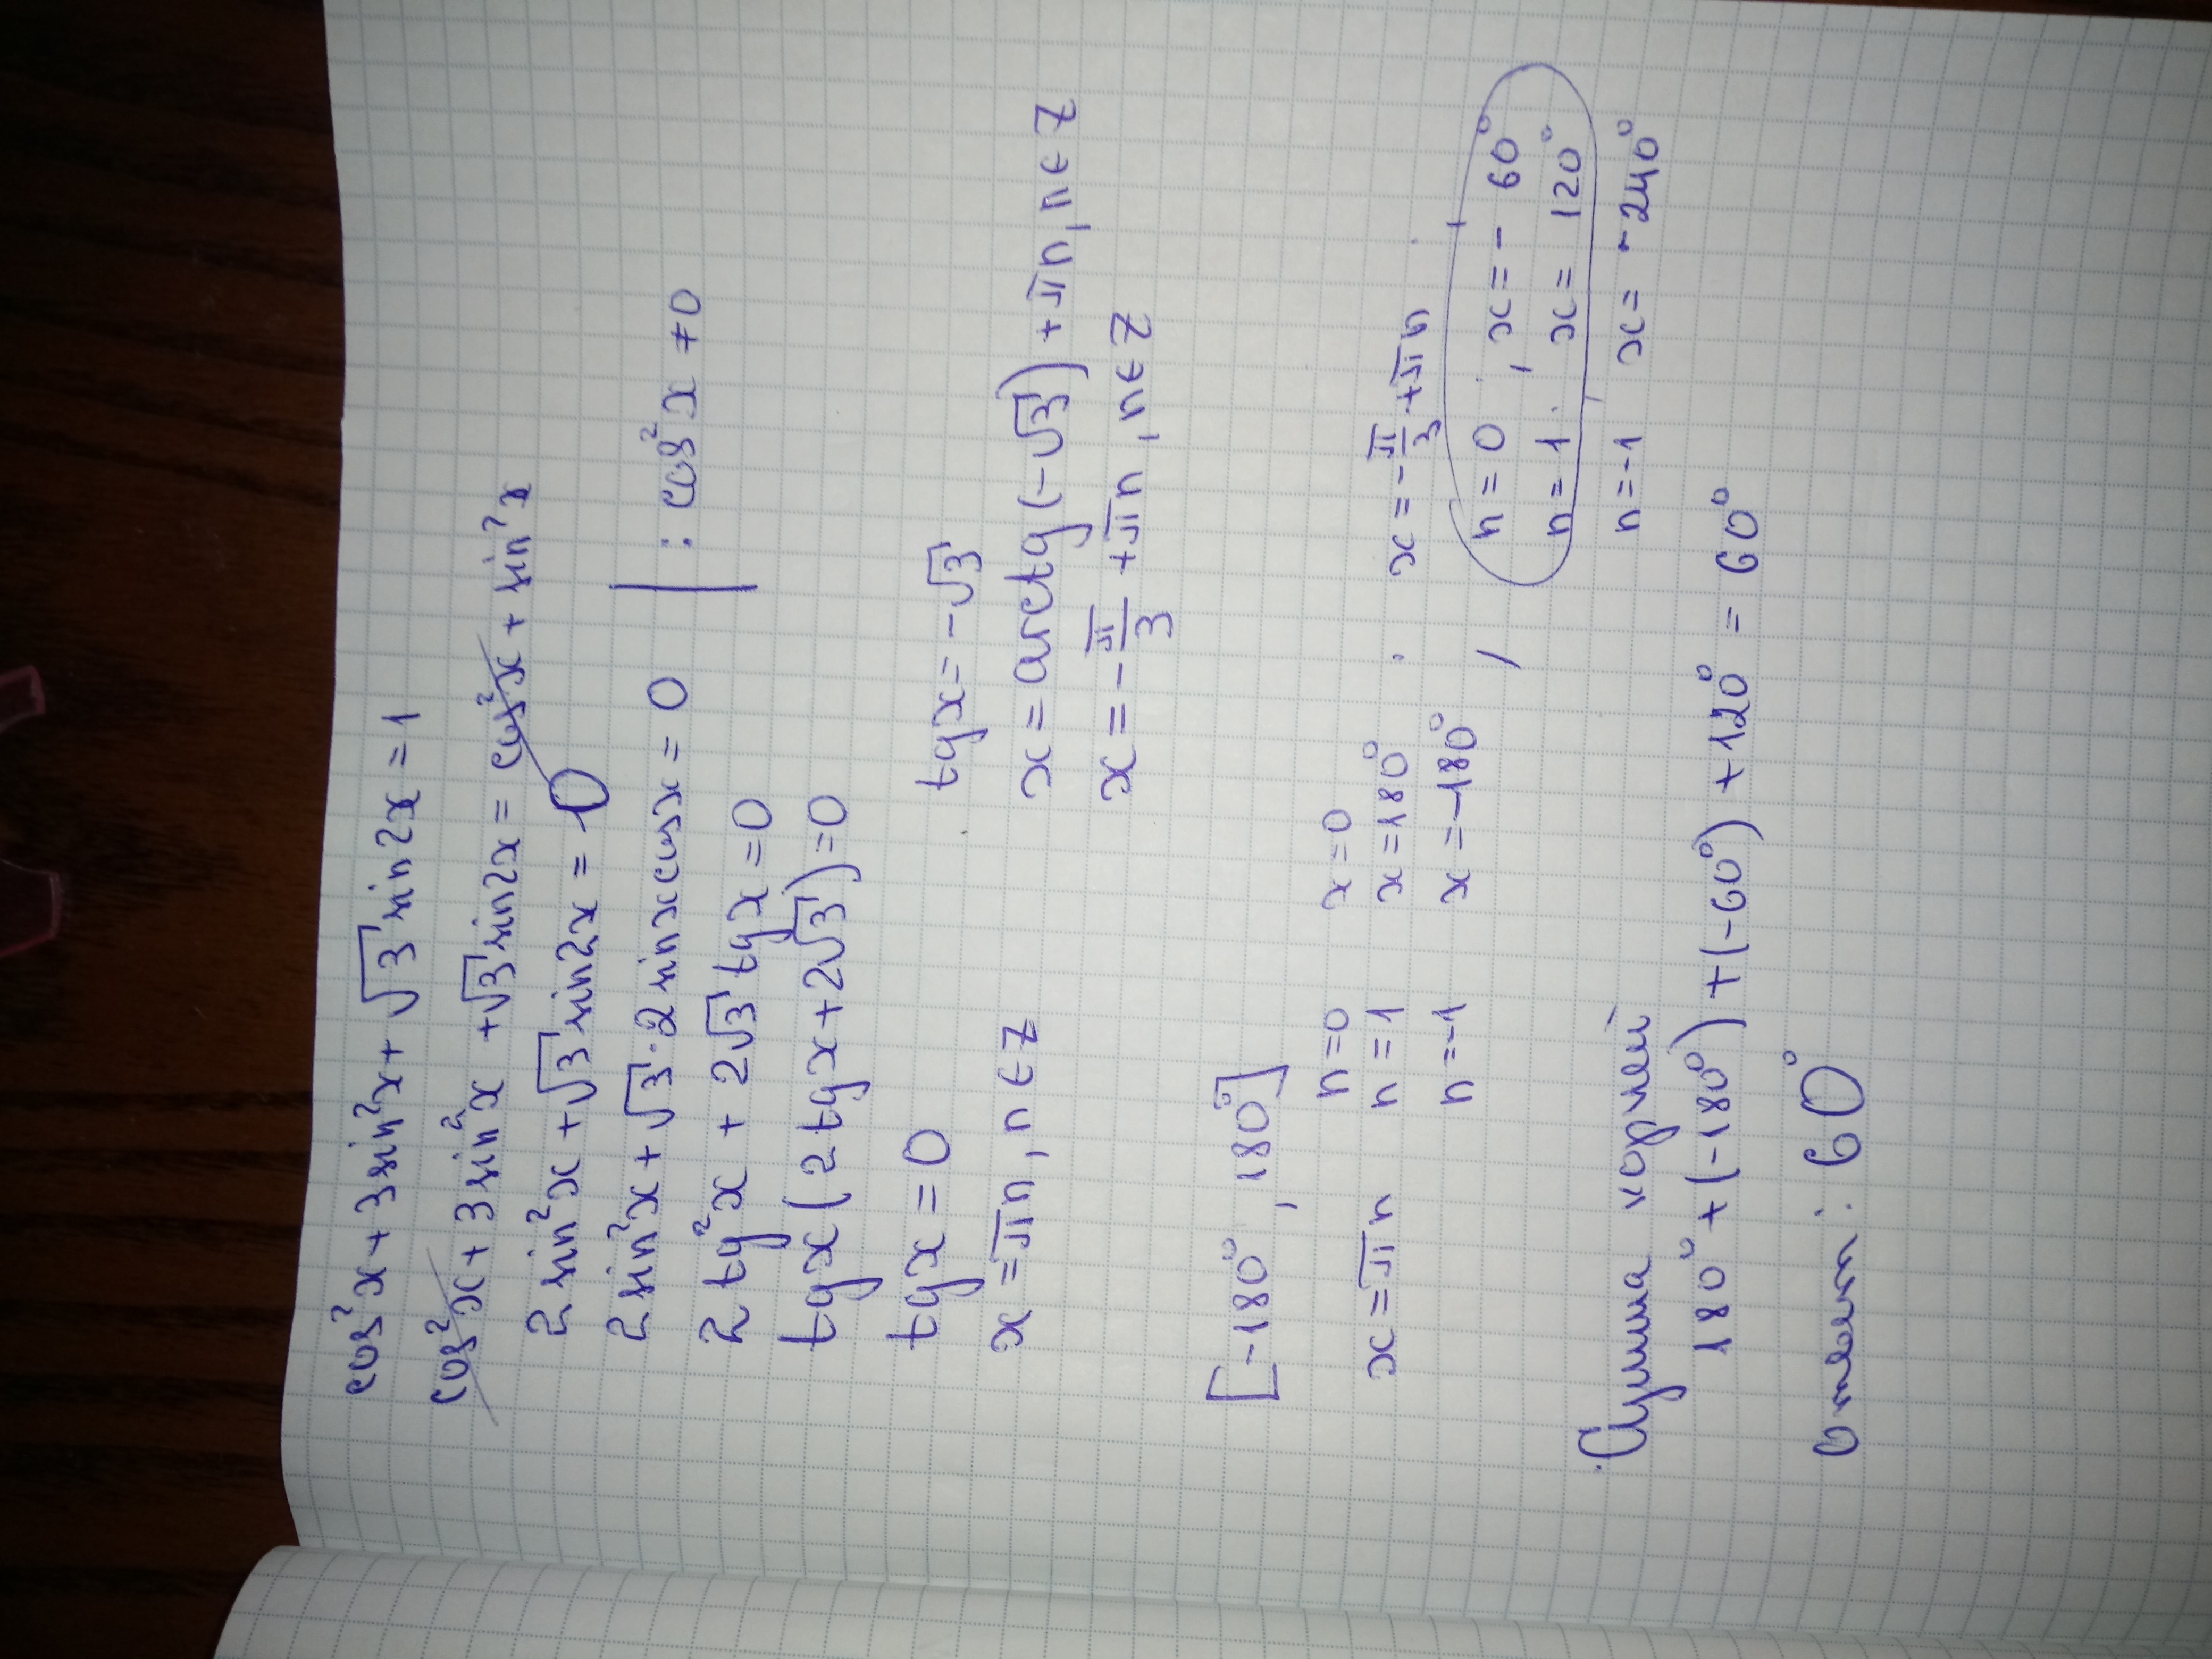 cos²x + 3sin²x + √3 sin2x = 1
cos²x + 3sin²x + √3 sin2x = cos²x + sin²x
2sin²x + √3 sin2x = 0
2sin²x + √3·2sinxcosx = 0 | : cos²x ≠ 0
2tg²x + 2√3 tgx = 0
tgx(2tgx + 2√3) = 0
tgx = 0 tgx = -√3
x = πn, n∈Z x = arctg(-√3) + πn, n∈Z
x = -π/3 + πn, n∈Z
[-180°, 180°]
x = πn n=0 x=0 x = -π/3 + πn
n=1 x=180° n=0, x=-60°
n=-1 x=-180° n=1, x=120°
n=-1 x=-240°
Сумма корней
180° + (-180°) + (-60°) + 120° = 60°
Ответ: 60°